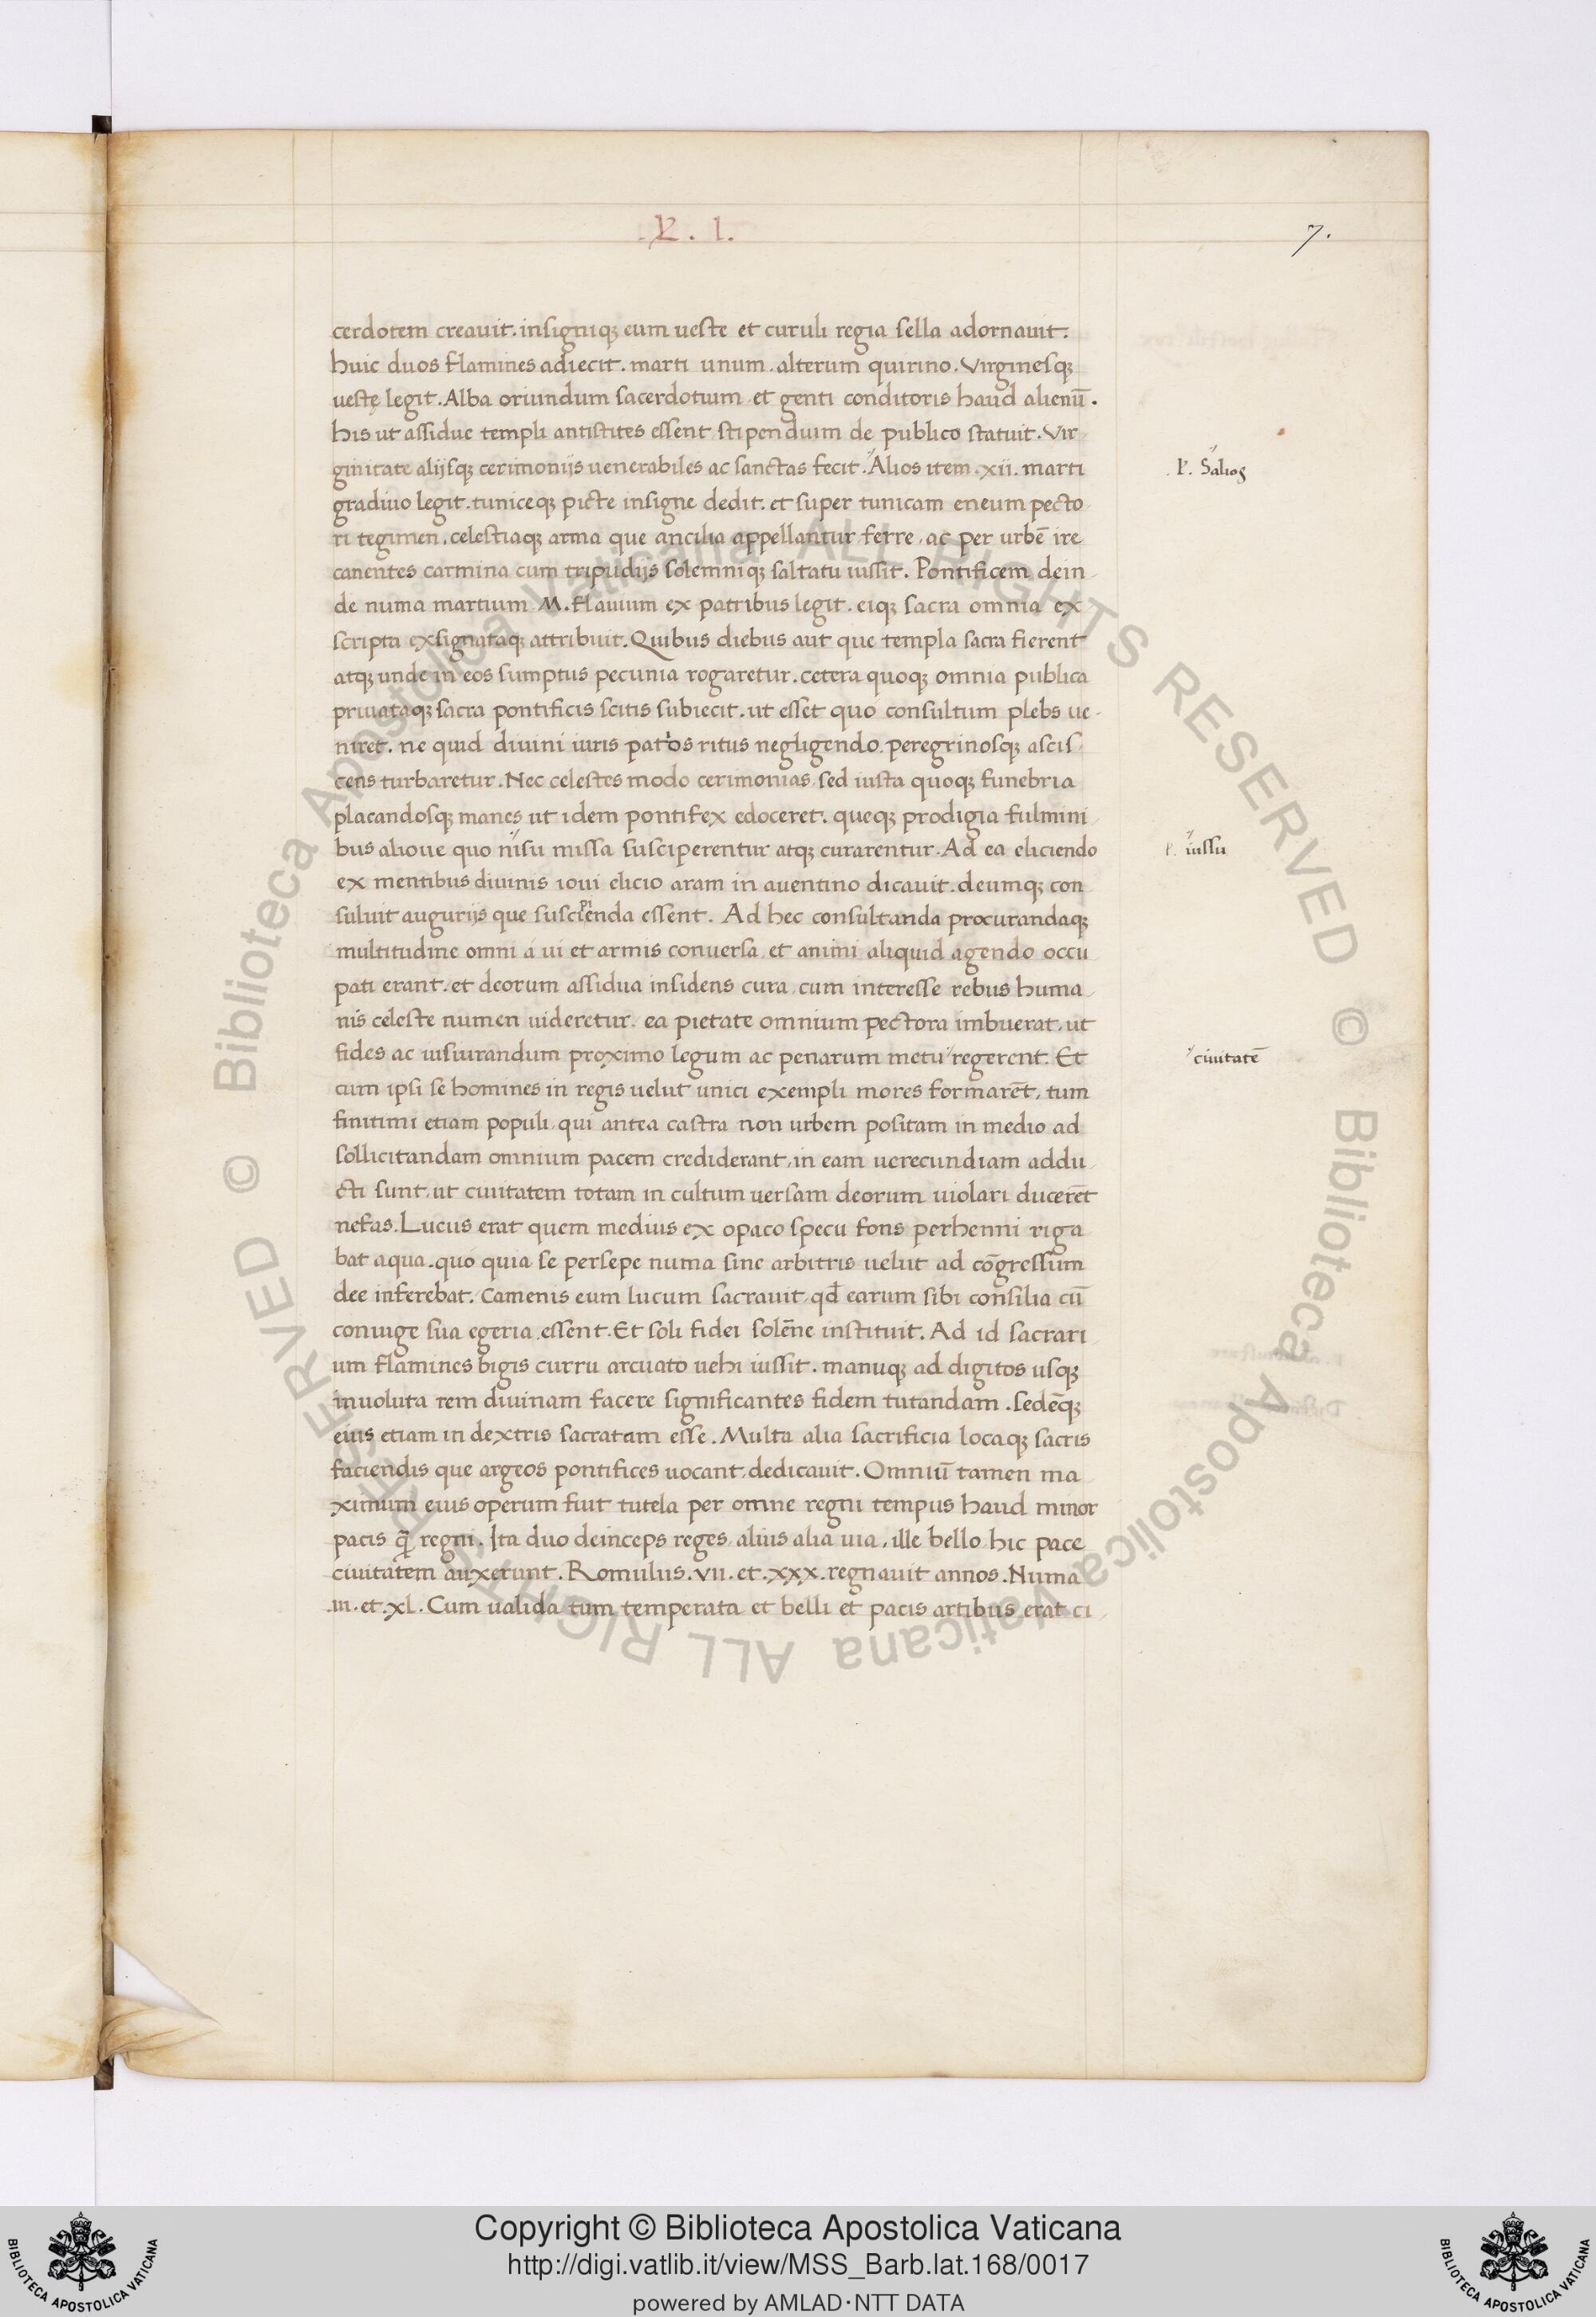 .L. I.
7.
cerdotem creauit. insigniqȝ eum ueste et curuli regia sella adornauit.
huic duos flamines adiecit. marti unum. alterum quirino. Virginesqȝ
uestę legit. Alba oriundum sacerdotium et genti conditoris haud alienū.
his ut assidue templi antistites essent stipendium de publico statuit. Vir
ginitate alijsqȝ cerimonijs uenerabiles ac sanctas fecit. Alios item .xii. marti
P. Salios
gradiuo legit. tuniceqȝ picte insigne dedit. et super tunicam eneum pecto
ri tegimen. celestiaqȝ arma que ancilia appellantur ferre, ac per urbē ire
canentes carmina cum tripudijs solemniqȝ saltatu iussit. Pontificem dein
de numa martium M. flauium ex patribus legit. eiqȝ sacra omnia ex
scripta exsignataqȝ attribuit. Quibus diebus aut que templa sacra fierent
atqȝ unde in eos sumptus pecunia rogaretur. cetera quoqȝ omnia publica
priuataqȝ sacra pontificis scitis subiecit. ut esset quo consultum plebs ue
niret. ne quid diuini iuris patios ritus negligendo peregrinosqȝ ascis
cens turbaretur. Nec celestes modo cerimonias sed iusta quoqȝ funebria
placandosqȝ manes ut idem pontifex edoceret. queqȝ prodigia fulmini
bus alioue quo nisu missa susciperentur atqȝ curarentur. Ad ea eliciendo
P. iussu
ex mentibus diuinis ioui elicio aram in auentino dicauit. deumqȝ con
suluit augurijs que suscipienda essent. Ad hec consultanda procurandaqȝ
multitudine omni a ui et armis conuersa et animi aliquid agendo occu
pati erant. et deorum assidua insidens cura, cum interesse rebus huma
nis celeste numen uideretur. ea pietate omnium pectora imbuerat, ut
fides ac iusiurandum proximo legum ac penarum metu regerent. Et
ciuitatē
cum ipsi se homines in regis uelut unici exempli mores formarēt, tum
finitimi etiam populi, qui antea castra non urbem positam in medio ad
sollicitandam omnium pacem crediderant, in eam uerecundiam addu
cti sunt, ut ciuitatem totam in cultum uersam deorum uiolari ducerēt
nefas. Lucus erat quem medius ex opaco specu fons perhenni riga
bat aqua. quo quia se persepe numa sine arbitris uelut ad cōgressum
dee inferebat. Camenis eum lucum sacrauit, qđ earum sibi consilia cū
coniuge sua egeria essent. Et soli fidei solēne instituit. Ad id sacrari
um flamines bigis curru arcuato uehi iussit. manuqȝ ad digitos usqȝ
inuoluta rem diuinam facere significantes fidem tutandam. sedēqȝ
eius etiam in dextris sacratam esse. Multa alia sacrificia locaqȝ sacris
faciendis que argeos pontifices uocant, dedicauit. Omniū tamen ma
ximum eius operum fuit tutela per omne regni tempus haud minor
pacis q̄ regni. Ita duo deinceps reges, alius alia uia, ille bello hic pace
ciuitatem auxerunt. Romulus .vii. et .xxx. regnauit annos. Numa
.iii. et .xl. Cum ualida tum temperata et belli et pacis artibus erat ci
Copyright © Biblioteca Apostolica Vaticana
http://digi.vatlib.it/view/MSS_Barb.lat.168/0017
powered by AMLAD·NTT DATA